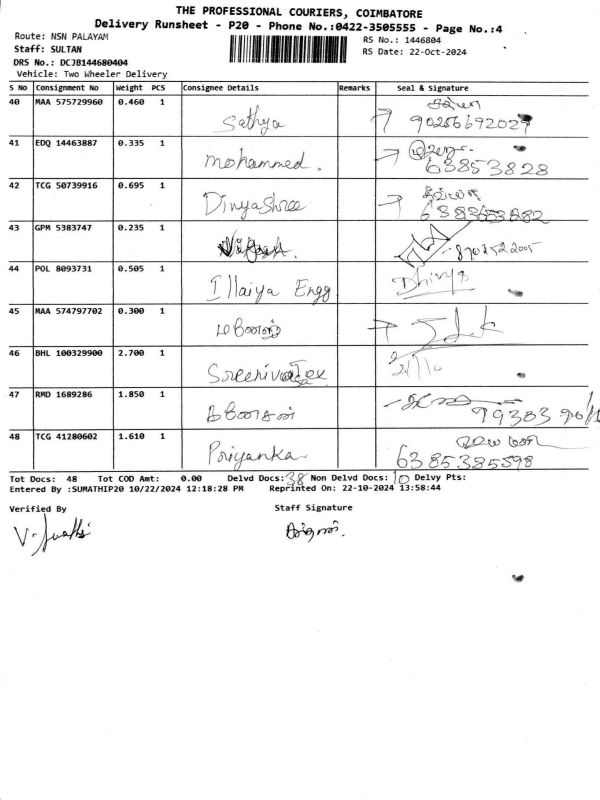 THE PROFESSIONAL COURIERS, COIMBATORE
Delivery Runsheet - P20 - Phone No.:0422-3505555 - Page No.:4
Route: NSN PALAYAM RS No.: 1446804
Staff: SULTAN RS Date: 22-Oct-2024
DRS No.: DCJB144680404
Vehicle: Two Wheeler Delivery
S No Consignment No Weight PCS Consignee Details Remarks Seal & Signature
40 MAA 575729960 0.460 1 Sathya
41 EDQ 14463887 0.335 1 mohammed. 63853828
42 TCG 50739916 0.695 1 DivyaShree
43 GPM 5383747 0.235 1
44 POL 8093731 0.505 1 Illaiya Engg Dhivya
45 MAA 574797702 0.300 1
46 BHL 100329900 2.700 1
47 RMD 1689286 1.850 1
48 TCG 41280602 1.610 1 Priyanka 6385385598
Tot Docs: 48 Tot COD Amt: 0.00 Delvd Docs: 38 Non Delvd Docs: 10 Delvy Pts:
Entered By :SUMATHIP20 10/22/2024 12:18:28 PM Reprinted On: 22-10-2024 13:58:44
Verified By Staff Signature